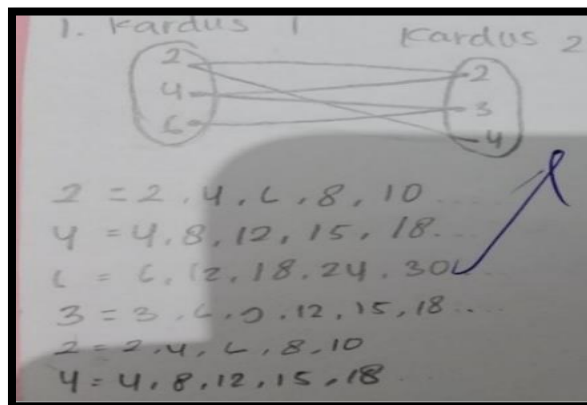 1. Kardus 1 Kardus 2
2 2
4 3
6 4
2 = 2, 4, 6, 8, 10 ....
4 = 4, 8, 12, 15, 18...
6 = 6, 12, 18, 24, 30 ...
3 = 3, 6, 9, 12, 15, 18 ...
2 = 2, 4, 6, 8, 10
4 = 4, 8, 12, 15, 18